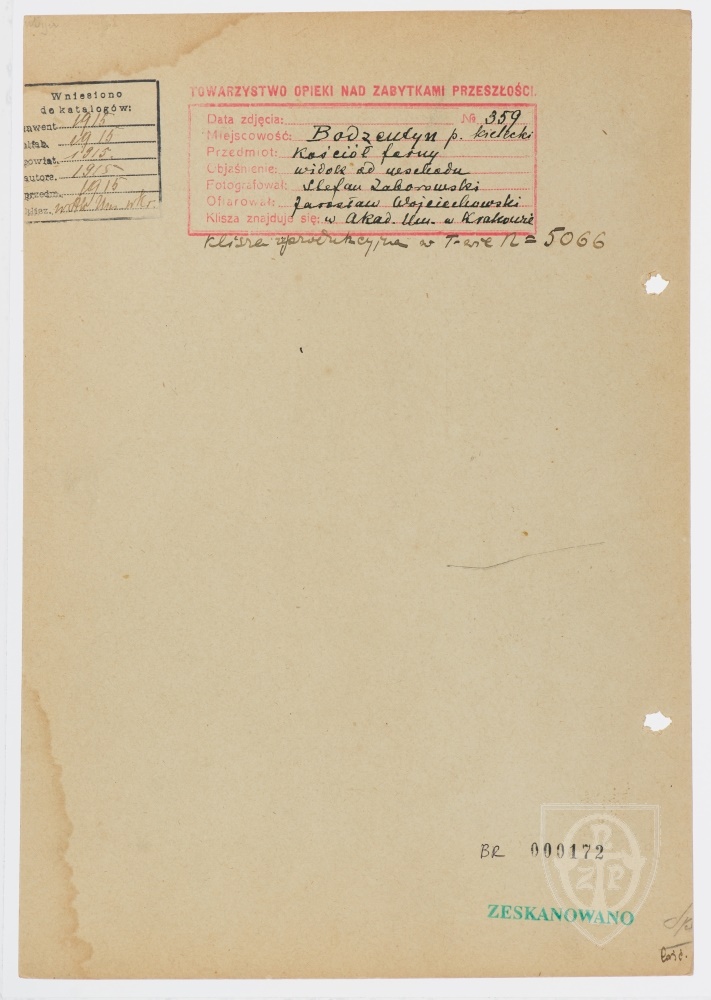 Wniesiono
do katalogów:
inwent. 1915
alfab. 1915
powiat. 1915.
autors. 1915
przedm. 1915
klisz. w Ak. Um. w Kr.
TOWARZYSTWO OPIEKI NAD ZABYTKAMI PRZESZŁOŚCI.
Data zdjęcia: № 359
Miejscowość: Bodzentyn p. kielecki
Przedmiot: Kościół farny
Objaśnienie: widok od wschodu
Fotografował: Stefan Zaborowski
Ofiarował: Jarosław Wojciechowski
Klisza znajduje się: w Akad. Um. w Krakowie
Klisza reprodukcyjna w T-wie N= 5066
BR 000172
TOnZP
ZESKANOWANO